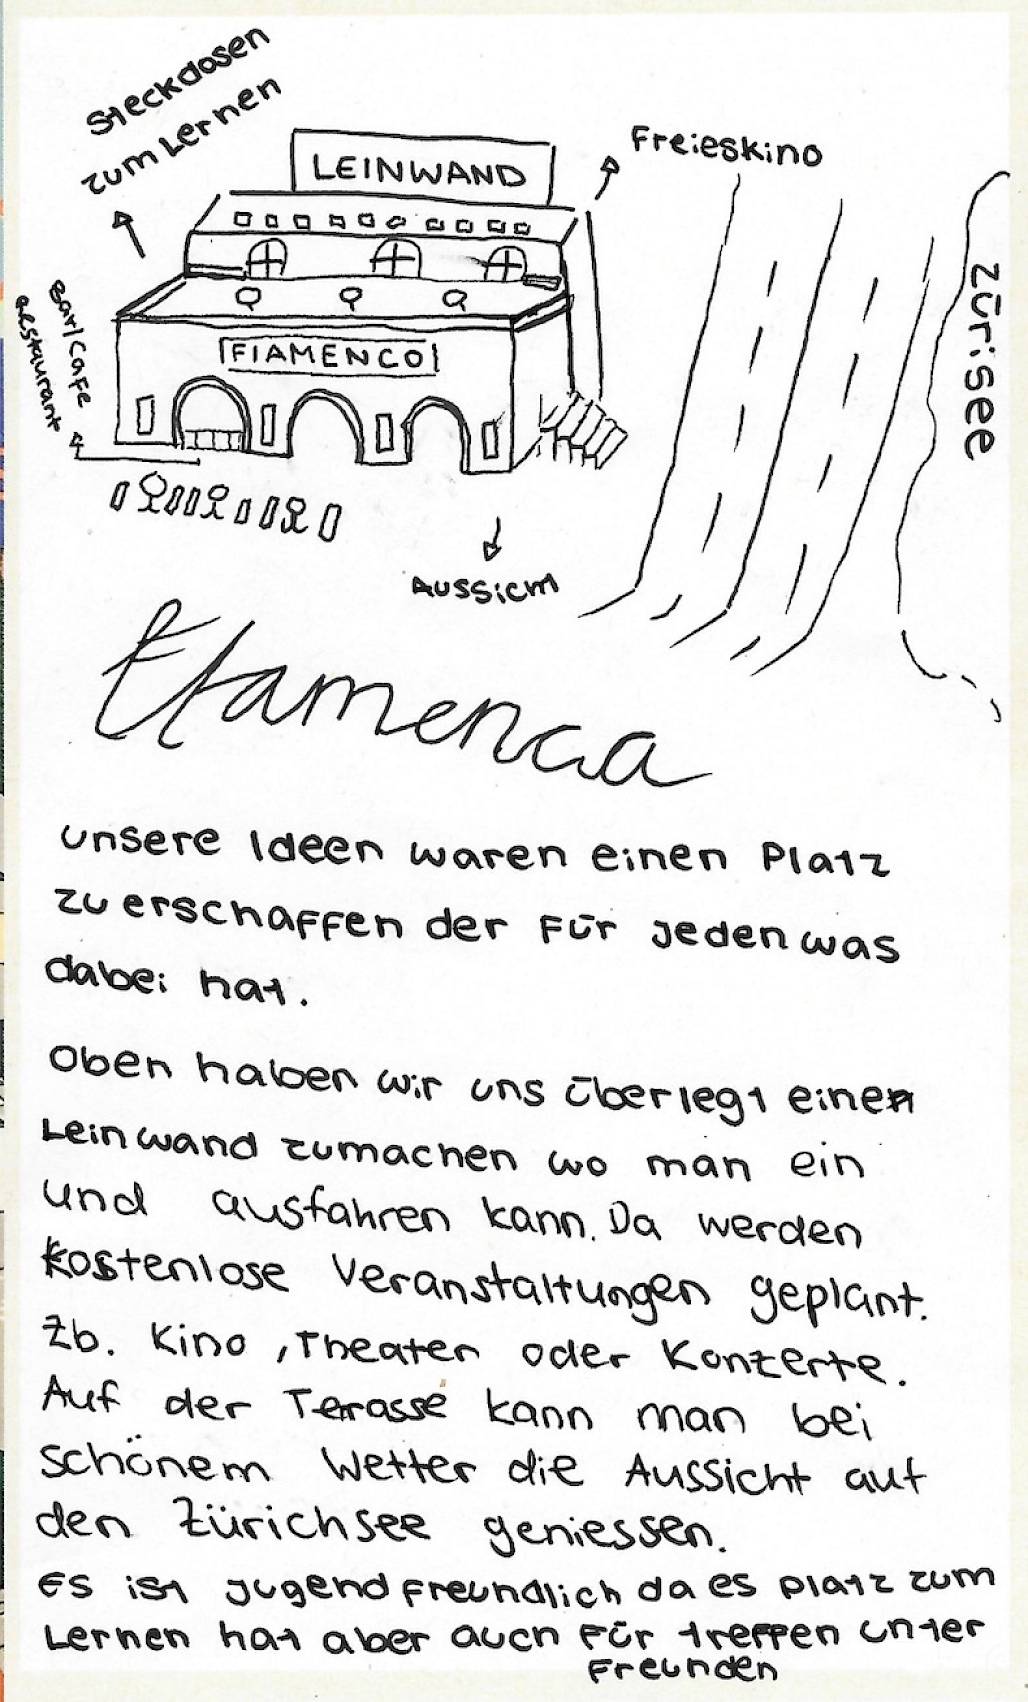 Steckdosen
zum Lernen
LEINWAND
Freieskino
Zürisee
Bar/Cafe
Restaurant
FIAMENCO
Aussicht
Flamenca
unsere Ideen waren einen Platz
zu erschaffen der Für jeden was
dabei hat.
Oben haben wir uns überlegt einen
Leinwand zumachen wo man ein
und ausfahren kann. Da werden
kostenlose Veranstaltungen geplant.
Zb. Kino, Theater oder Konzerte.
Auf der Terasse kann man bei
schönem Wetter die Aussicht auf
den Zürichsee geniessen.
Es ist jugendfreundlich da es Platz zum
Lernen hat aber auch Für treffen unter
Freunden